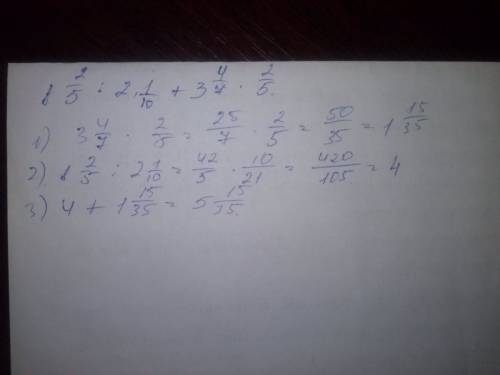 8 2/5 : 2 1/10 + 3 4/7 · 2/5.
1) 3 4/7 · 2/5 = 25/7 · 2/5 = 50/35 = 1 15/35
2) 8 2/5 : 2 1/10 = 42/5 · 10/21 = 420/105. = 4
3) 4 + 1 15/35 = 5 15/35.